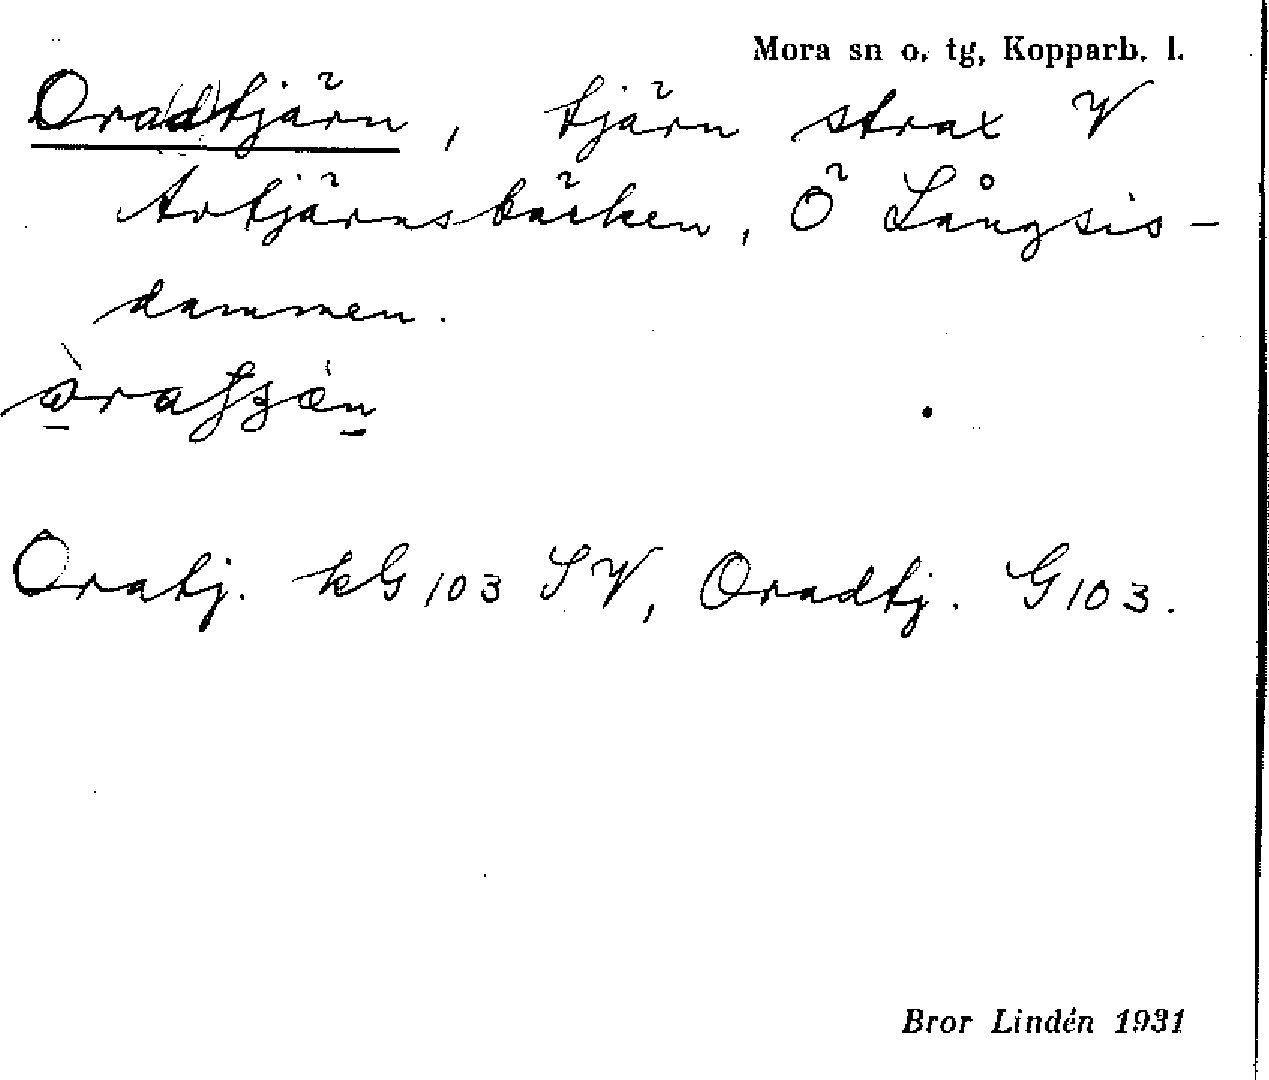 Mora sn o. tg, Kopparb. l.
Ora(d)tjärn, tjärn strax V
Artjärnsbäcken, Ö Långsis-
dammen.
Oratj. kG103 SV, Oradtj. G103.
Bror Lindén 1931